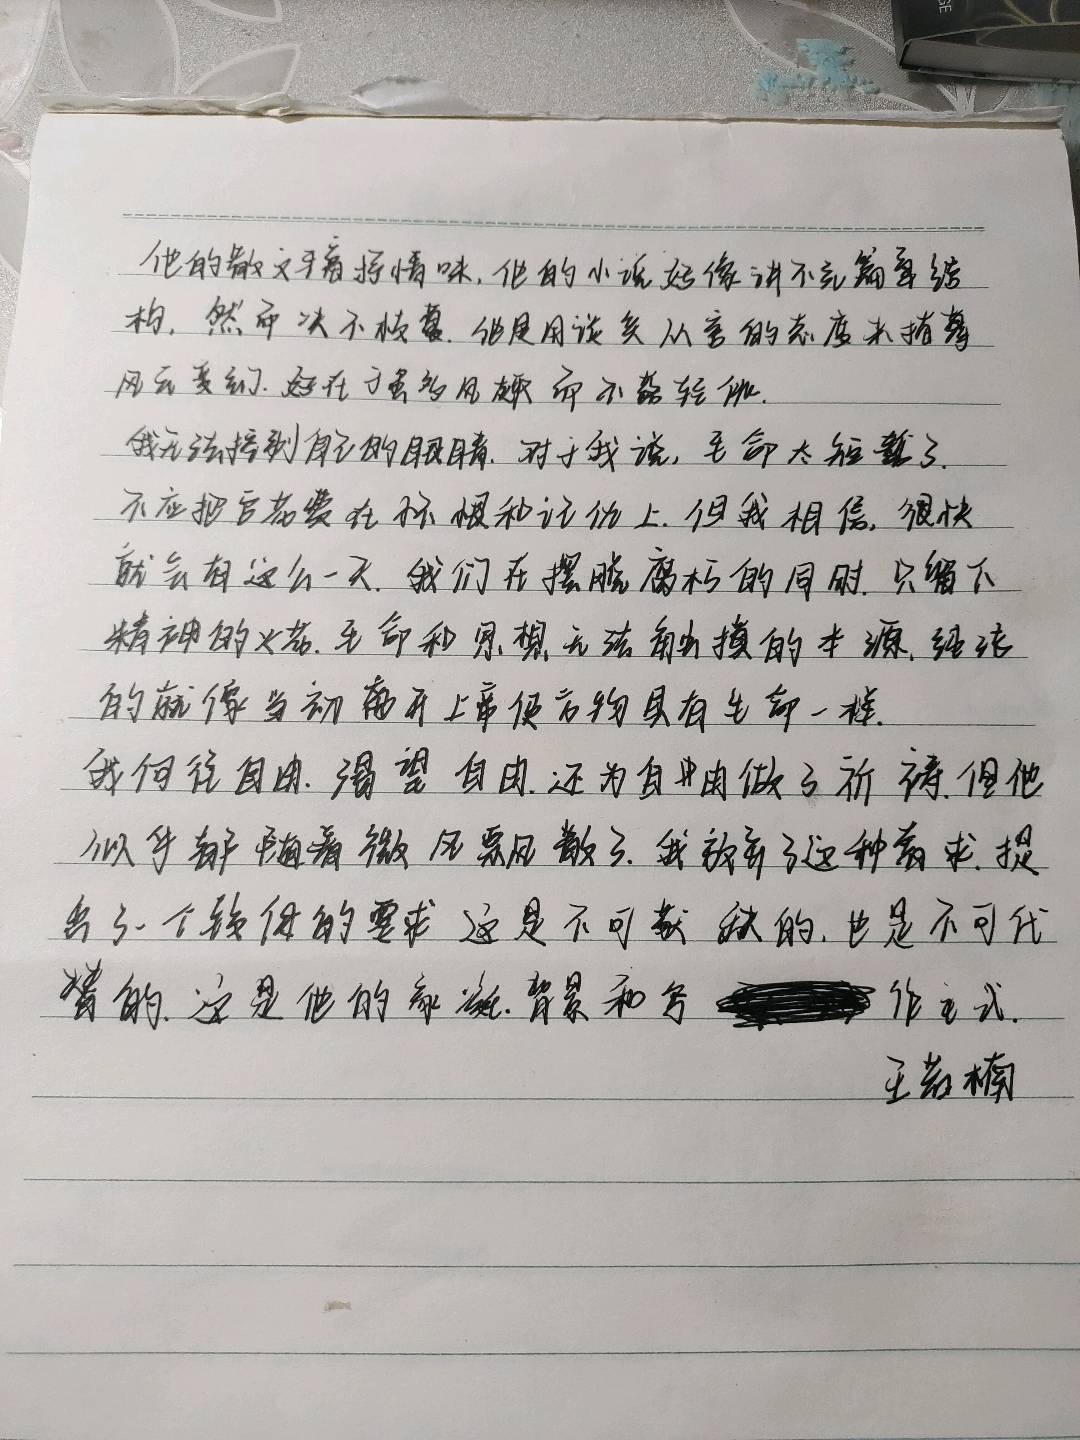 GE
他的散文平着抒情味，他的小说好像讲不完篇章结
构，然而决不枝蔓。他是用谈笑从容的态度来描摹
风云变幻，好在于虽多风趣而不落轻佻。
我无法接到自己的眼睛，对于我说，生命太短暂了，
不应把它荒费在怀恨和记仇上，但我相信，很快
就会有这么一天，我们在摆脱腐朽的同时，只留下
精神的火花，生命和思想无法触摸的本源，纯洁
的就像当初离开上帝使万物具有生命一样。
我向往自由，渴望自由，还为自由做了祈祷，但他
似乎都随着微风飘散了，我放弃了这种苛求，提
出了一个的要求 这是不可或缺的，也是不可代
替的，这是他的家，背景和 作主式。
王楠